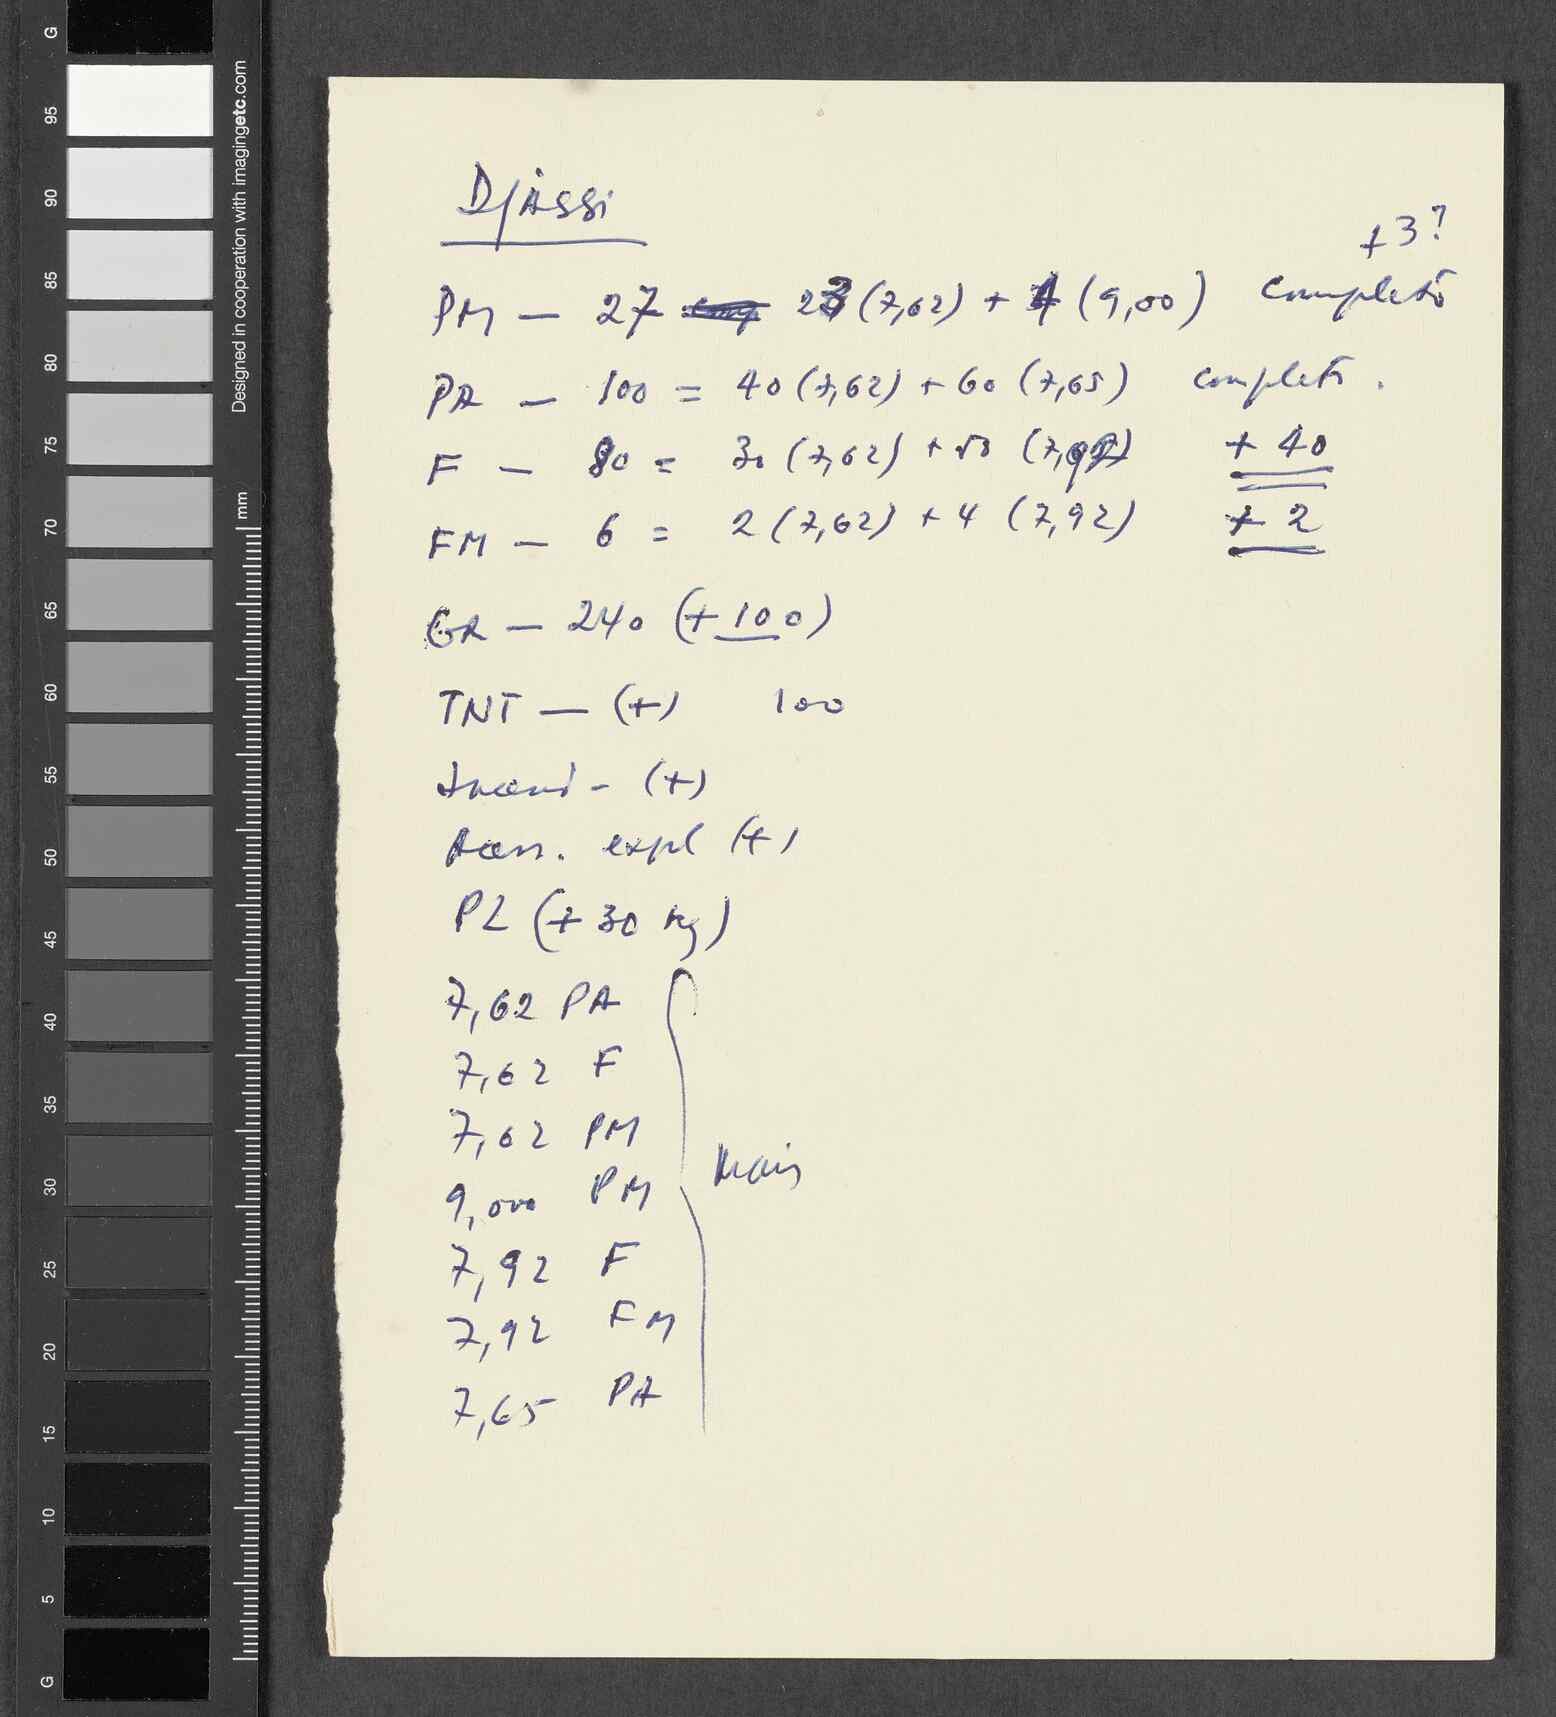 Djassi
+3?
PM — 27 23 (7,62) + 4 (9,00) completo
PA — 100 = 40 (7,62) + 60 (7,65) completo.
F — 80 = 30 (7,62) + 50 (7,92) + 40
FM — 6 = 2 (7,62) + 4 (7,92) + 2
GR — 240 (+ 100)
TNT — (+) 100
(+)
expl (+)
PL (+ 30 kg)
7,62 PA
7,62 F
7,62 PM
9,000 PM
7,92 F
7,92 FM
7,65 PA
Mais
G 95 90 85 80 75 70 65 60 55 50 45 40 35 30 25 20 15 10 5 G
Designed in cooperation with imagingetc.com
mm